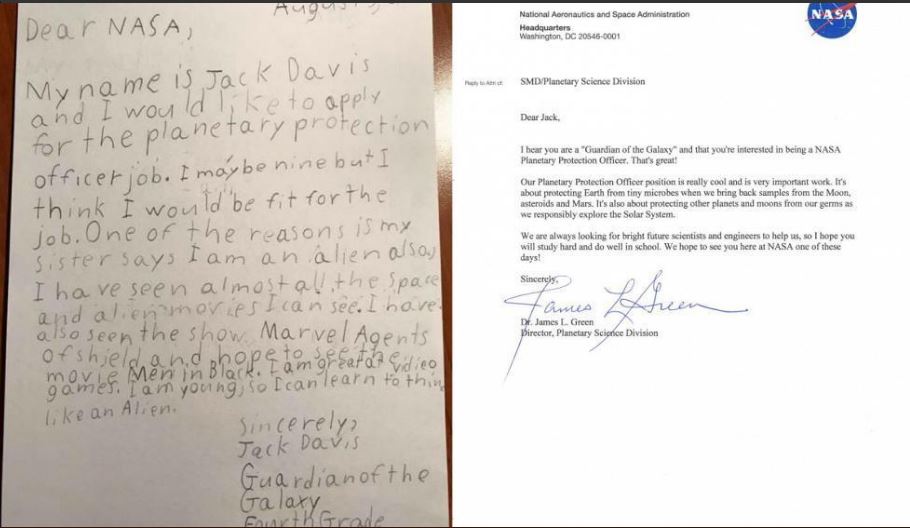 August
Dear NASA,
My name is Jack Davis
and I would like to apply
for the planetary protection
officer job. I maybe nine but I
think I would be fit for the
job. One of the reasons is my
sister says I am an alien also,
I have seen almost all the space
and alien movies I can see. I have
also seen the show Marvel Agents
of shield and hope to see the
movie Men in Black. I am great at video
games. I am young, so I can learn to thin
like an Alien.
Sincerely,
Jack Davis
Guardian of the
Galaxy
Fourth Grade
National Aeronautics and Space Administration
Headquarters
Washington, DC 20546-0001
NASA
Reply to Attn of: SMD/Planetary Science Division
Dear Jack,
I hear you are a "Guardian of the Galaxy" and that you're interested in being a NASA
Planetary Protection Officer. That's great!
Our Planetary Protection Officer position is really cool and is very important work. It's
about protecting Earth from tiny microbes when we bring back samples from the Moon,
asteroids and Mars. It's also about protecting other planets and moons from our germs as
we responsibly explore the Solar System.
We are always looking for bright future scientists and engineers to help us, so I hope you
will study hard and do well in school. We hope to see you here at NASA one of these
days!
Sincerely,
James L Green
Dr. James L. Green
Director, Planetary Science Division